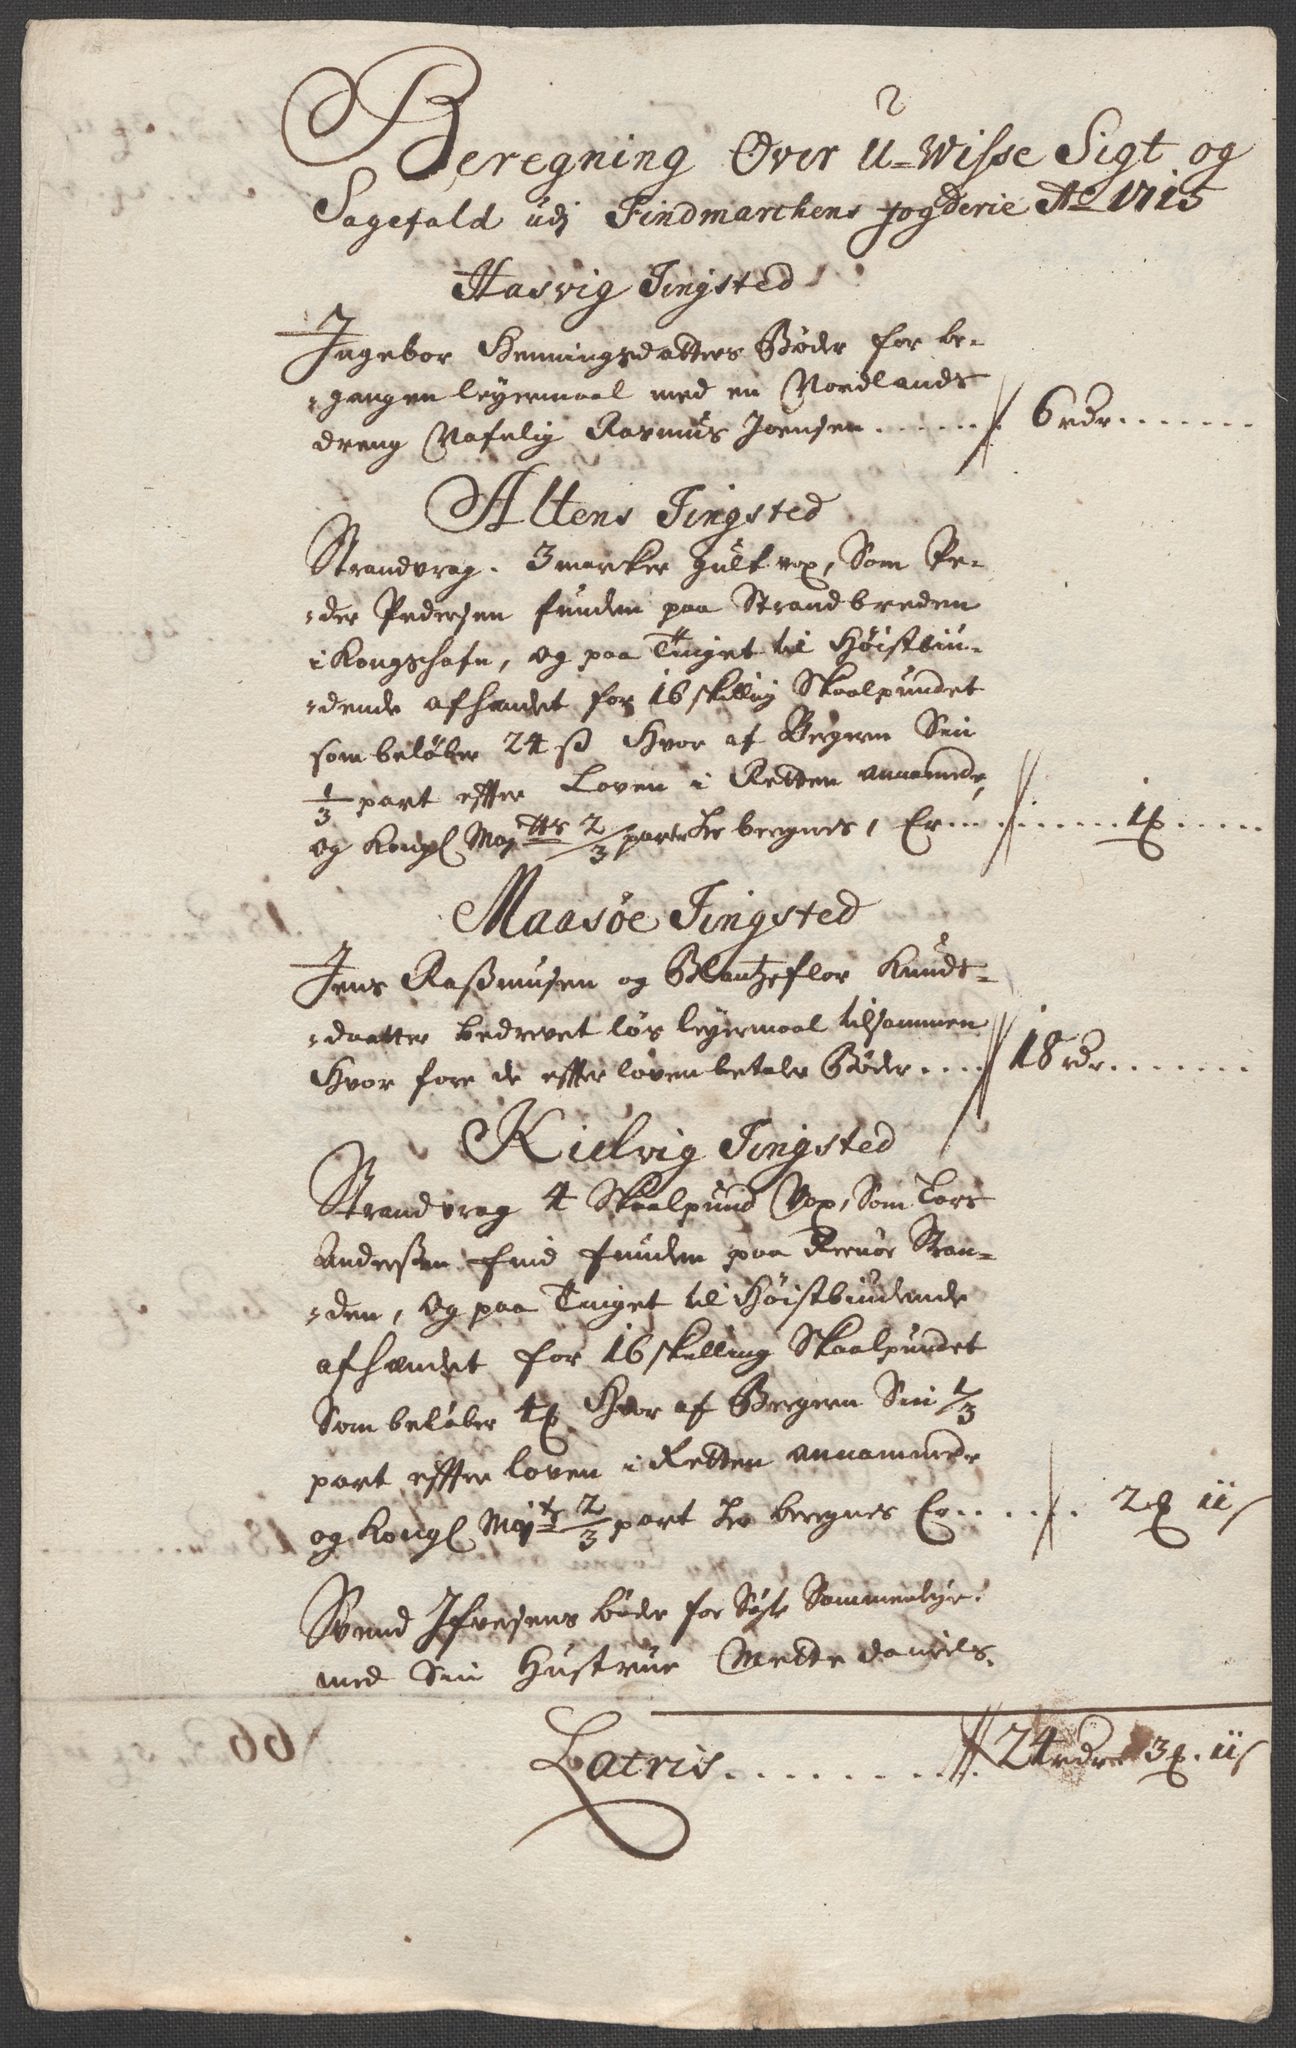 Beregning Over U-Wisse Sigt og
Sagefald udj Findmarchens fogderie Ao 1715
Hasvig Tingsted
Ingebor Henningsdatters Bøder for be-
-gangen leyermaal med en Nordlands
dreng Nafnlig Rasmus Joensen ...... 6 rdr ......
Altens Tingsted
Strandvrag. 3 marker gult vox, Som Pe-
-der Pedersen funden paa Strandbreden
i Kongshafn, og paa Tinget til Høistbiu-
-dende afhændet for 16 skilling Skaalpundet
som beløber 24 ß Hvor af Bergeren Sin
1/3 part effter Loven i Retten annammede,
og Kongl Maytts 2/3 parter her beregnes, Er ...... 1 ......
Maasøe Tingsted
Jens Raßmusen og Blantzeflor Knuds-
-daatter bedrevet løs leyermaal tilsammen
Hvor fore de effter loven betaler Bøder .... 18 rdr ......
Kielvig Tingsted
Strandvrag 4 Skaalpund Vox, Som Lars
Anderßen find funden paa Stran-
-den, og paa Tinget til Høistbiudende
afhændet for 16 skilling Skaalpundet
Som beløber Hvor af Bergeren Sin 1/3
part effter loven i Retten annammede
og Kongl Mayts 2/3 part her beregnes Er ...... 2 11 s
Svend Ifversens bøder for Sammenleye
med Sin Hustrue Mette Daniels.
Latris ........ 24 rdr 3. 11 s